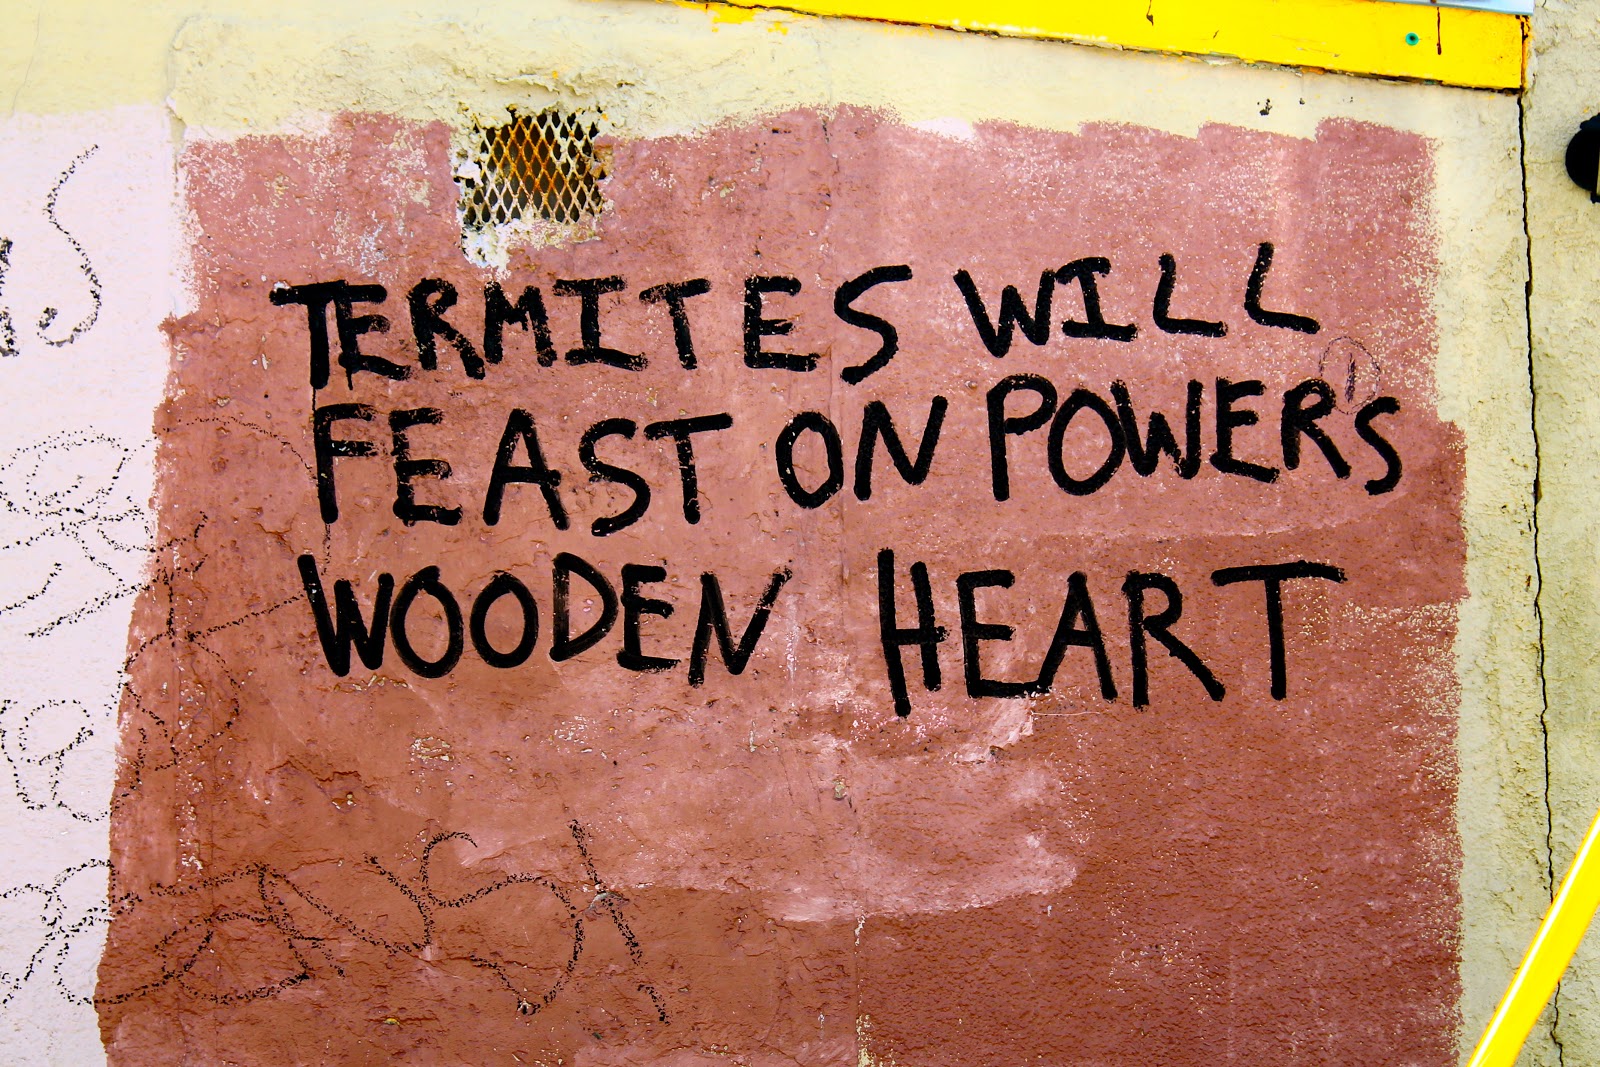 TERMITES WILL
FEAST ON POWERS
WOODEN HEART